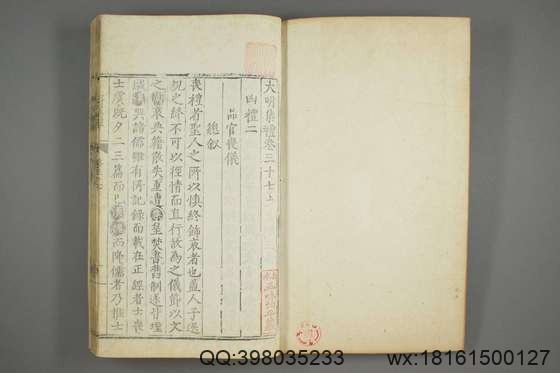 大明集禮卷三十七上
凶禮二
品官喪儀
總敘
喪禮者聖人之所以慎終飾哀者也蓋人子遇
親之終不可以徑情而直行故為之儀飾以文
之衰典籍散失重遭秦皇焚書舊制遂
與諸儒雖有所記錄而載在正經者士喪
士虞既夕二三篇而已而降儒者乃推士
QQ:398035233
wx:18161500127